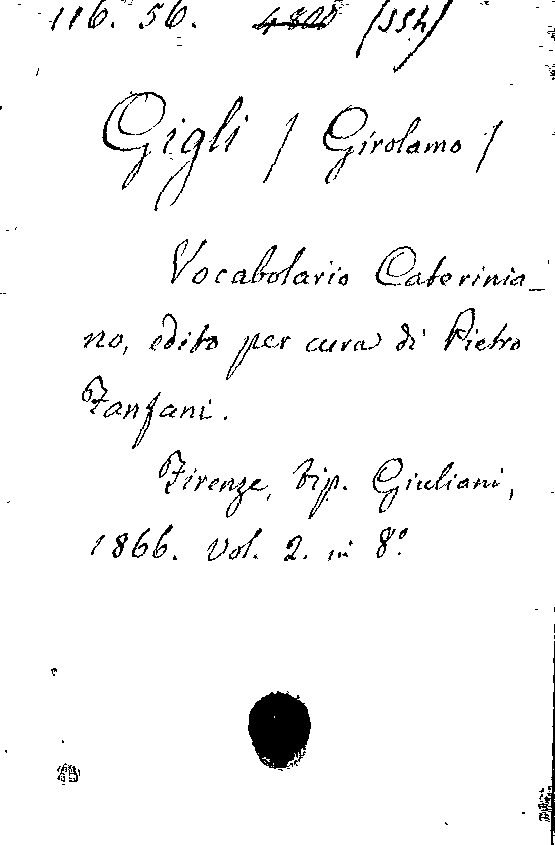 116. 56. 4800
Gigli / Girolamo /
Vocabolario Caterinia_
no, edito per cura di Pietro
Fanfani.
Firenze, tip. Giuliani,
1866. Vol. 2. in 8°.